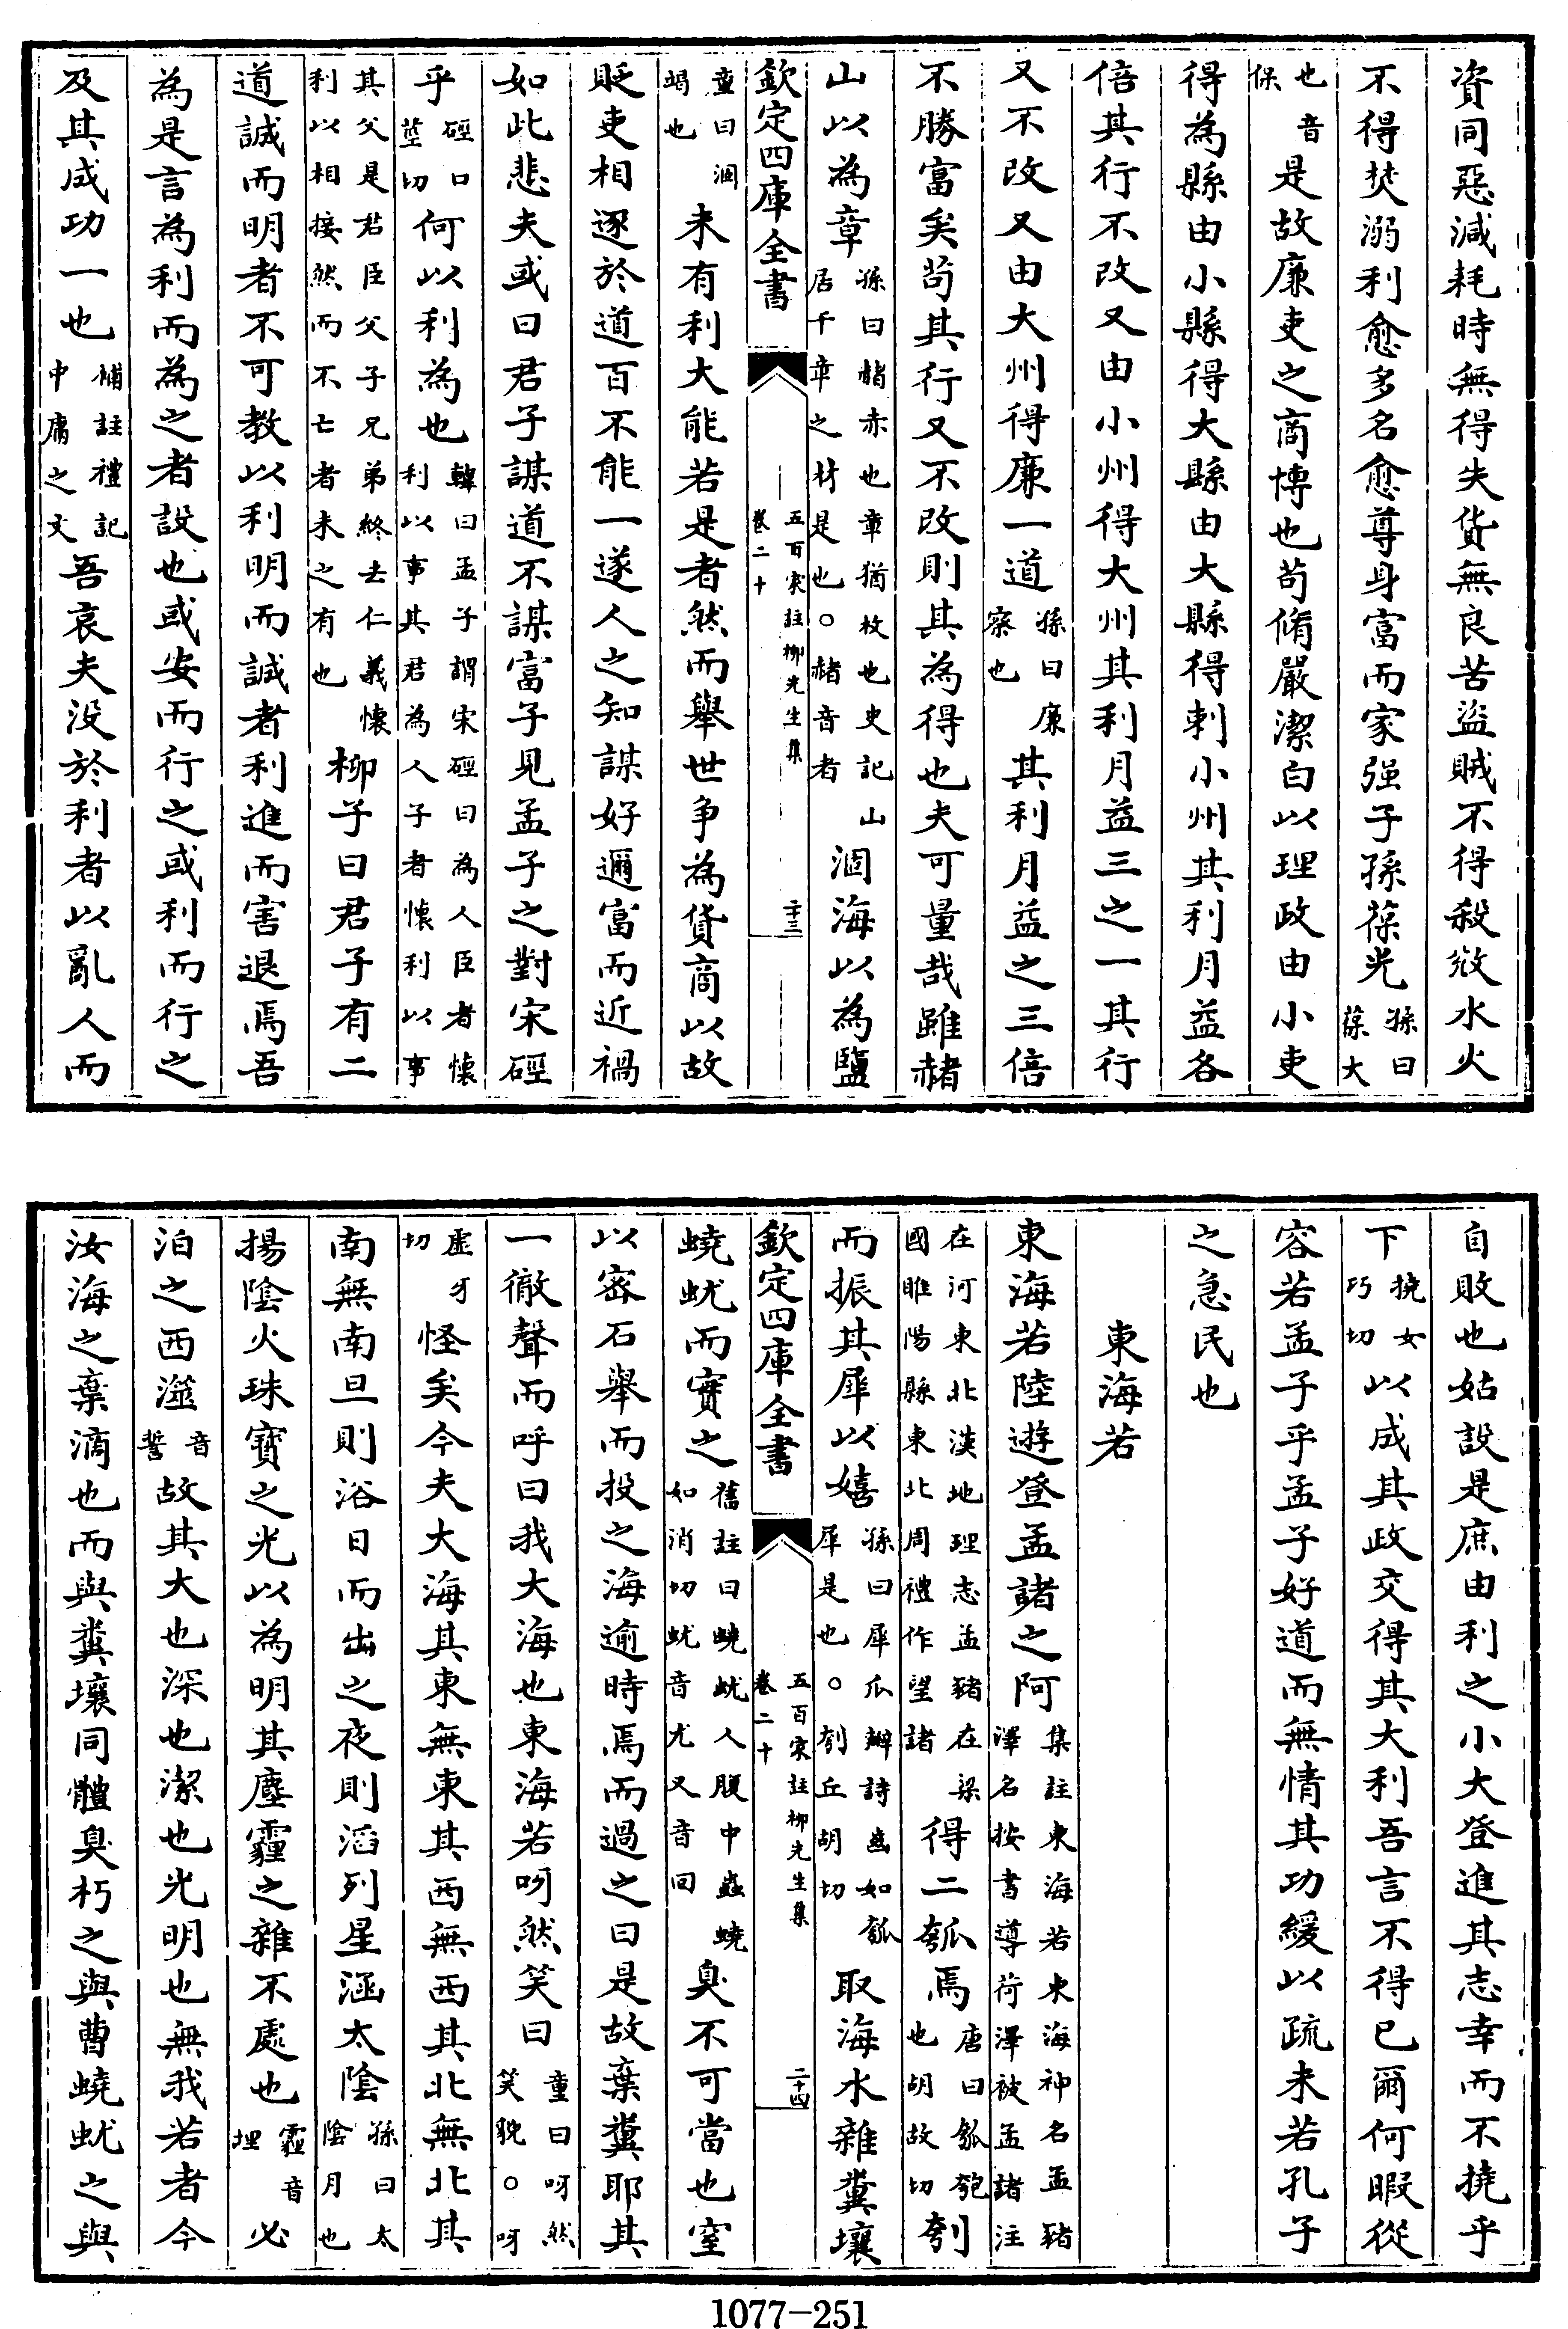 資同惡減耗時無得失貨無良苦盜賊不得殺敓水火
不得焚溺利愈多名愈尊身富而家强子孫葆光孫曰葆大
也音保是故廉吏之商博也苟脩嚴潔白以理政由小吏
得為縣由小縣得大縣由大縣得刺小州其利月益各
倍其行不改又由小州得大州其利月益三之一其行
又不改又由大州得廉一道孫曰廉察也其利月益之三倍
不勝富矣苟其行又不改則其為得也夫可量哉雖赭
山以為章孫曰赭赤也章猶枚也史記山居千章之材是也○赭音者涸海以為鹽
欽定四庫全書 五百家註柳先生集 卷二十 二十三
童曰涸竭也未有利大能若是者然而舉世争為貨商以故
貶吏相逐於道百不能一遂人之知謀好邇富而近禍
如此悲夫或曰君子謀道不謀富子見孟子之對宋硜
乎硜口莖切何以利為也韓曰孟子謂宋硜曰為人臣者懷利以事其君為人子者懷利以事
其父是君臣父子兄弟終去仁義懷利以相接然而不亡者未之有也柳子曰君子有二
道誠而明者不可教以利明而誠者利進而害退焉吾
為是言為利而為之者設也或安而行之或利而行之
及其成功一也補註禮記中庸之文吾哀夫没於利者以亂人而
自敗也姑設是庶由利之小大登進其志幸而不撓乎
下撓女巧切以成其政交得其大利吾言不得已爾何暇從
容若孟子乎孟子好道而無情其功緩以疏未若孔子
之急民也
東海若
東海若陸遊登孟諸之阿集註東海若東海神名孟豬澤名按書導荷澤被孟諸注
在河東北漢地理志孟豬在梁國睢陽縣東北周禮作望諸得二瓠焉唐曰瓠匏也胡故切刳
而振其犀以嬉孫曰犀瓜瓣詩齒如瓠犀是也○刳丘胡切取海水雜糞壤
欽定四庫全書 五百家註柳先生集 卷二十 二十四
蟯蚘而實之舊註曰蟯蚘人腹中蟲蟯如消切蚘音尤又音回臭不可當也窒
以密石舉而投之海逾時焉而過之曰是故棄糞耶其
一徹聲而呼曰我大海也東海若呀然笑曰童曰呀然笑貌○呀
虛牙切怪矣今夫大海其東無東其西無西其北無北其
南無南旦則浴日而出之夜則滔列星涵太陰孫曰太陰月也
揚陰火珠寶之光以為明其塵霾之雜不處也霾音埋必
泊之西澨音誓故其大也深也潔也光明也無我若者今
汝海之棄滴也而與糞壤同體臭朽之與曹蟯蚘之與
1077-251